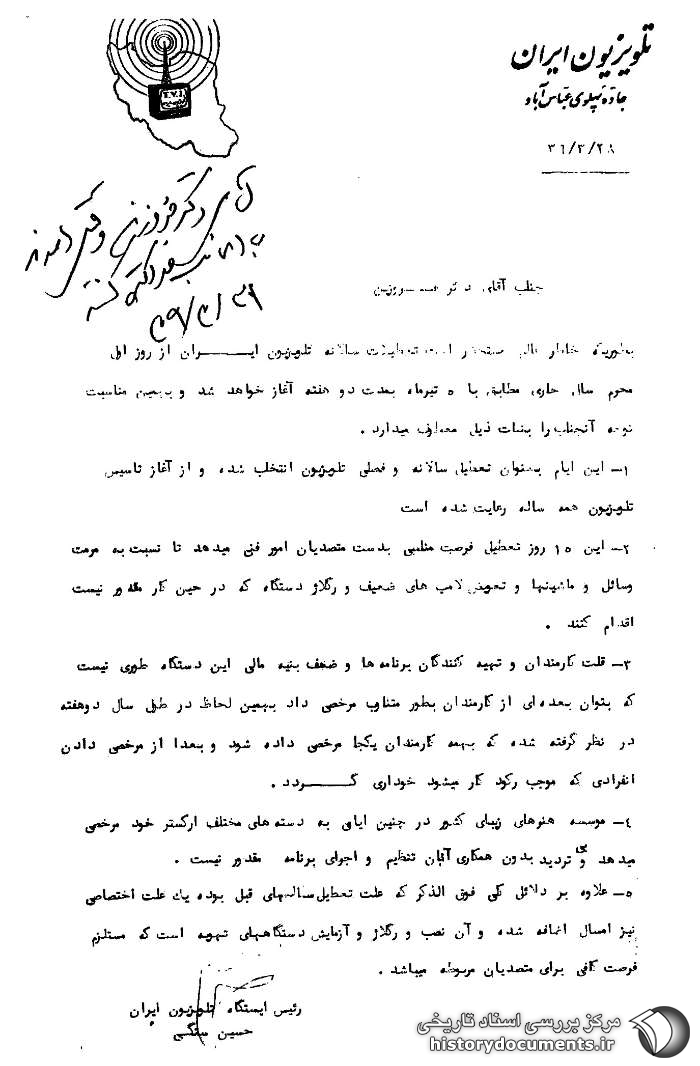 تلویزیون ایران
جاده پهلوی عباس آباد
T.V.I
۳۶/۳/۲۸
آقای دکتر فروزین وقتی آمدند
گفته
جناب آقای دکتر
بطوریکه خاطر عالی مستحضر است تعطیلات سالانه تلویزیون ایــــران از روز اول
محرم سال جاری مطابق با ۵ تیرماه بمدت دو هفته آغاز خواهد شد و بهمین مناسبت
توجه آنجناب را بنکات ذیل معطوف میدارد .
۱ــ این ایام بعنوان تعطیل سالانه و فصلی تلویزیون انتخاب شده و از آغاز تاسیس
تلویزیون همه ساله رعایت شده است
۲ــ این ۱۵ روز تعطیل فرصت مناسبی بدست متصدیان امور فنی میدهد تا نسبت به مرمت
وسائل و ماشینها و تعویض لامپ های ضعیف و رگلاژ دستگاه که در حین کار مقدور نیست
اقدام کنند .
۳ــ قلت کارمندان و تهیه کنندگان برنامه ها و ضعف بنیه مالی این دستگاه طوری نیست
که بتوان بعده ای از کارمندان بطور متناوب مرخصی داد بهمین لحاظ در طول سال دوهفته
در نظر گرفته شده که بهمه کارمندان یکجا مرخصی داده شود و بعدا از مرخصی دادن
انفرادی که موجب رکود کار میشود خوداری گـــــردد .
۴ــ موسسه هنرهای زیبای کشور در چنین ایامی به دسته های مختلف ارکستر خود مرخصی
میدهد و بی تردید بدون همکاری آنان تنظیم و اجرای برنامه مقدور نیست .
۵ــ علاوه بر دلائل کلی فوق الذکر که علت تعطیل سالهای قبل بوده یك علت اختصاصی
نیز امسال اضافه شده و آن نصب و رگلاژ و آزمایش دستگاههای تهویه است که مستلزم
فرصت کافی برای متصدیان مربوطه میباشد .
رئیس ایستگاه تلویزیون ایران
حسین
مرکز بررسی اسناد تاریخی
historydocuments.ir